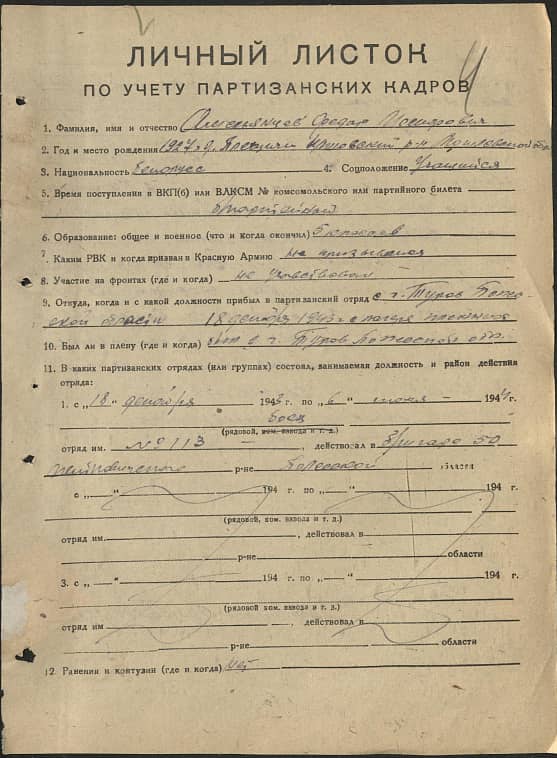 ЛИЧНЫЙ ЛИСТОК
ПО УЧЕТУ ПАРТИЗАНСКИХ КАДРОВ
1. Фамилия, имя и отчество
2. Год и место рождения 1927 г.
3. Национальность Белорус 4. Соцположение Учащийся
5. Время поступления в ВКП(б) или ВЛКСМ № комсомольского или партийного билета
6. Образование: общее и военное (что и когда окончил) 5 классов
7. Каким РВК и когда призван в Красную Армию Не призывался
8. Участие на фронтах (где и когда) не участвовал
9. Откуда, когда и с какой должности прибыл в партизанский отряд с г. Туров
18 декабря 1943 г. с лагеря
10. Был ли в плену (где и когда) г. Туров
11. В каких партизанских отрядах (или группах) состоял, занимаемая должность и район действия
отряда:
1. с „18" декабря 1943 г. по „6" июня 1944 г.
боец
(рядовой, ком. взвода и т. д.)
отряд им. № 113, действовал в бригаде 50
р-не Полесской области
с „ " 194 г. по „ " 194 г.
(рядовой, ком. взвода и т. д.)
отряд им. , действовал в
р-не области
3. с „ " 194 г. по „ " 194 г.
(рядовой ком. взвода и т. д.)
отряд им. действовал в
р-не области
12. Ранения и контузии (где и когда) нет